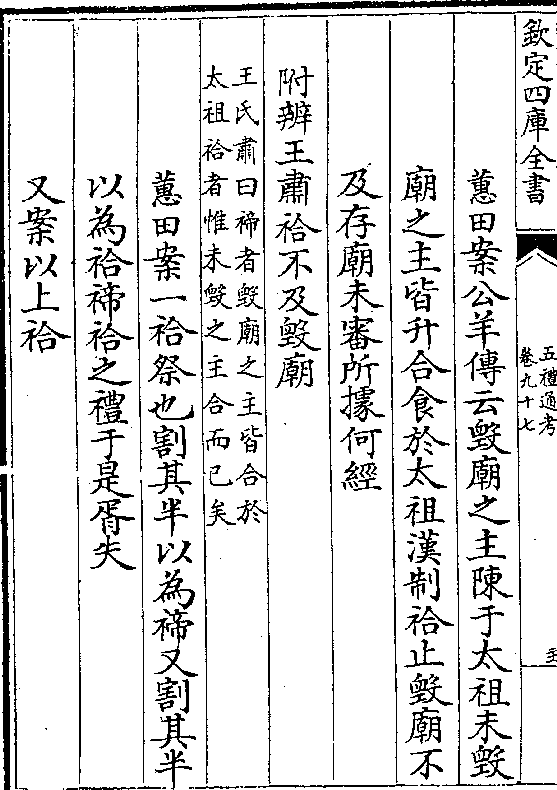 欽定四庫全書
五禮通考
卷九十七
蕙田案公羊傳云毀廟之主陳于太祖未毀
廟之主皆升合食於太祖漢制祫止毀廟不
及存廟未審所據何經
附辨王肅祫不及毀廟
王氏肅曰禘者毀廟之主皆合於
太祖祫者惟未毀之主合而已矣
蕙田案一祫祭也割其半以為禘又割其半
以為祫禘祫之禮于是胥失
又案以上祫